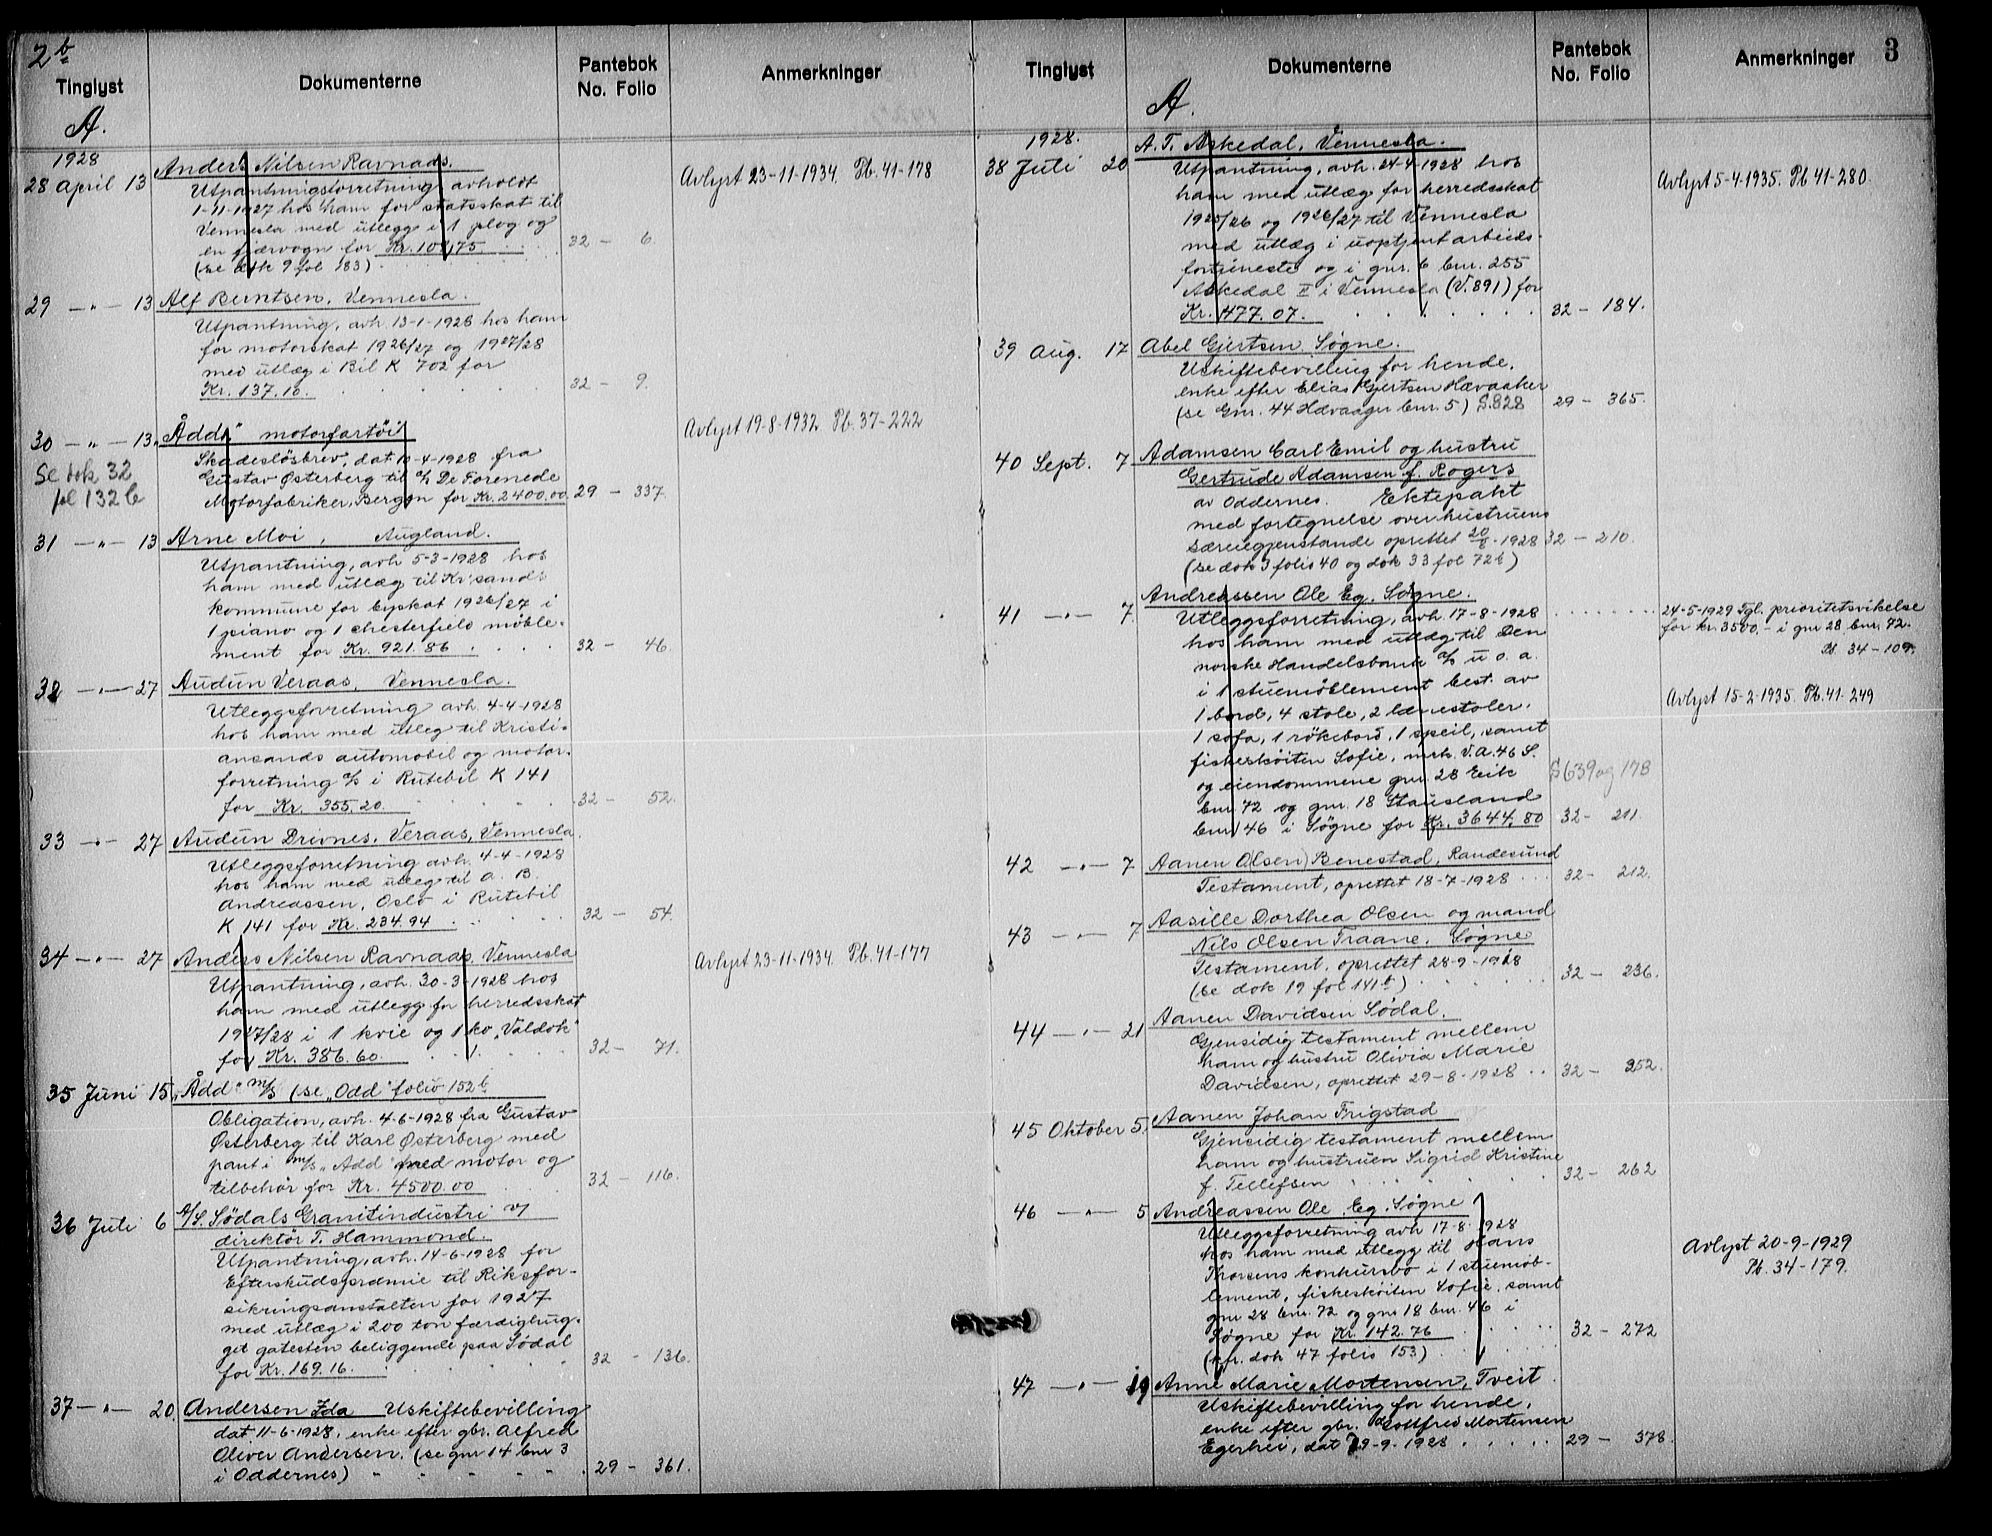 2b
Tinglyst
Dokumenterne
Pantebok
No. Folio
Anmerkninger
A.
1928
28 April 13 Anders Nilsen Ravnaas.
Utpantningsforretning avholdt
1-11-1927 hos ham for statsskat til
Vennesla med utlegg i 1 plog og
en fjærvogn for Kr. 101,75 32 - 6.
(se dok 9 fol 183)
Avlyst 23-11-1934. Pb. 41-178
29 -"- 13 Alf Berntsen, Vennesla.
Utpantning, avh. 13-1-1928 hos ham
for motorskat 1926/27 og 1927/28
med utlæg i Bil K 702 for
Kr. 137.16. 32 - 9.
30 -"- 13 „Ådd" motorfartöi
Se dok 32
fol 132 b
Skadesløsbrev, dat 10-4-1928 fra
Gustav Østerberg til A/S De Forenede
Motorfabriker, Bergen for Kr. 2400.00 29 - 337.
Avlyst 19-8-1932 Pb. 37-222
31 -"- 13 Arne Moi, Augland.
Utpantning, avh 5-3-1928 hos
ham med utlæg til Kr.sands
kommune for byskat 1926/27 i
1 piano og 1 chesterfield møble-
ment for Kr. 921.86 32 - 46.
32 -"- 27 Audun Veraas, Vennesla.
Utleggsforretning avh. 4-4-1928
hos ham med utleg til Kristi-
ansands automobil og motor-
forretning A/S i Rutebil K 141
for Kr. 355.20 32 - 52.
33 -"- 27 Audun Drivnes, Veraas, Vennesla.
Utleggsforretning avh. 4-4-1928
hos ham med utleg til A. B.
Andreassen, Oslo i Rutebil
K 141 for Kr. 234.94 32 - 54.
34 -"- 27 Anders Nilsen Ravnaas, Vennesla
Utpantning, avh. 30-3-1928 hos
ham med utlegg for herredsskat
1927/28 i 1 kvie og 1 ko „Valdok"
for Kr. 386.60 32 - 71.
Avlyst 23-11-1934. Pb. 41-177
35 Juni 15 „Ådd" m/s (se „Odd" folio 152 b
Obligation, avh. 4-6-1928 fra Gustav
Østerberg til Karl Østerberg med
pant i m/s „Add" med motor og
tilbehør for Kr. 4500.00 32 - 116.
36 Juli 6 A/S. Sødals Granitindustri v/
direktør T. Hammond.
Utpantning, avh. 14-6-1928 for
Efterskudspræmie til Riksfor-
sikringsanstalten for 1927
med utlæg i 200 ton færdighug-
get gatesten beliggende paa Sødal
for Kr. 169.16. 32 - 136.
37 -"- 20 Andersen Ida Uskiftebevilling
dat 11-6-1928, enke efter gbr. Alfred
Oliver Andersen. (se gnr 14 bnr 3
i Oddernes) 29 - 361.
3
Tinglyst
Dokumenterne
Pantebok
No. Folio
Anmerkninger
A.
1928.
38 Juli 20 A. T. Askedal, Vennesla.
Utpantning, avh. 24-4-1928 hos
ham med utlæg for herredsskat
1925/26 og 1926/27 til Vennesla
med utlæg i uoptjent arbeids-
fortjeneste og i gnr. 6 bnr. 255
Askedal II i Vennesla (V. 891) for
Kr. 477.07. 32 - 184.
Avlyst 5-4-1935. Pb 41-280.
39 Aug. 17 Abel Gjertsen, Søgne.
Uskiftebevilling for hende,
enke efter Elias Gjertsen Hævaaker
(se Gnr. 44 Hævaager bnr. 5) S. 828 29 - 365.
40 Sept. 7 Adamsen Carl Emil og hustru
Gertrude Adamsen f. Rogers
av Oddernes. Ektepakt
med fortegnelse over hustruens
særeiegjenstande oprettet 20/8-1928 32 - 210.
(se dok 3 folio 40 og dok 33 fol 72 b)
41 -"- 7 Andreassen Ole Eg, Søgne.
Utleggsforretning, avh 17-8-1928
hos ham med utlæg til Den
norske Handelsbank A/S u. o. a.
i 1 stuemøblement best. av
1 bord, 4 stole, 2 lænestoler,
1 sofa, 1 rökebord, 1 speil, samt
fiskeskøiten Sofie, mrk. V.A. 46 S.
og eiendommene gnr. 28 Eeik
bnr. 72 og gnr. 18 Stausland
bnr. 46 i Søgne for Kr. 3644.80 32 - 211.
S 639 og 178
24-5-1929 Tgl. prioritetsvikelse
for kr. 3500.- i gnr 28 bnr. 72.
Pb. 34 - 109.
Avlyst 15-2-1935. Pb. 41-249
42 -"- 7 Aanen O(lsen) Benestad, Randesund
Testament, oprettet 18-7-1928 32 - 212.
43 -"- 7 Aasille Dorthea Olsen og mand
Nils Olsen Traane. Søgne
Testament, oprettet 28-9-1918 32 - 236.
(se dok 19 fol 141 b)
44 -"- 21 Aanen Davidsen Sødal.
Gjensidig testament mellem
ham og hustru Olivia Marie
Davidsen, oprettet 29-8-1928 32 - 252.
45 Oktober 5. Aanen Johan Frigstad
Gjensidig testament mellem
ham og hustruen Sigrid Kristine
f. Tellefsen 32 - 262
46 -"- 5 Andreassen Ole Eg, Søgne
Utleggsforretning avh 17-8-1928
hos ham med utlegg til Hans
Thorsens konkursbo i 1 stuemøb-
lement, fiskeskøiten Sofie, samt
gnr 28 bnr. 72 og gnr 18 bnr. 46 i
Søgne for Kr. 142.76 32 - 272
(kfr. dok 47 folio 153)
Avlyst 20-9-1929
Pb. 34-179.
47 -"- 19 Anne Marie Mortensen, Tveit.
Uskiftebevilling for hende,
enke efter gbr. Gottfred Mortensen
Egerhei, dat 29-9-1928 29 - 378.